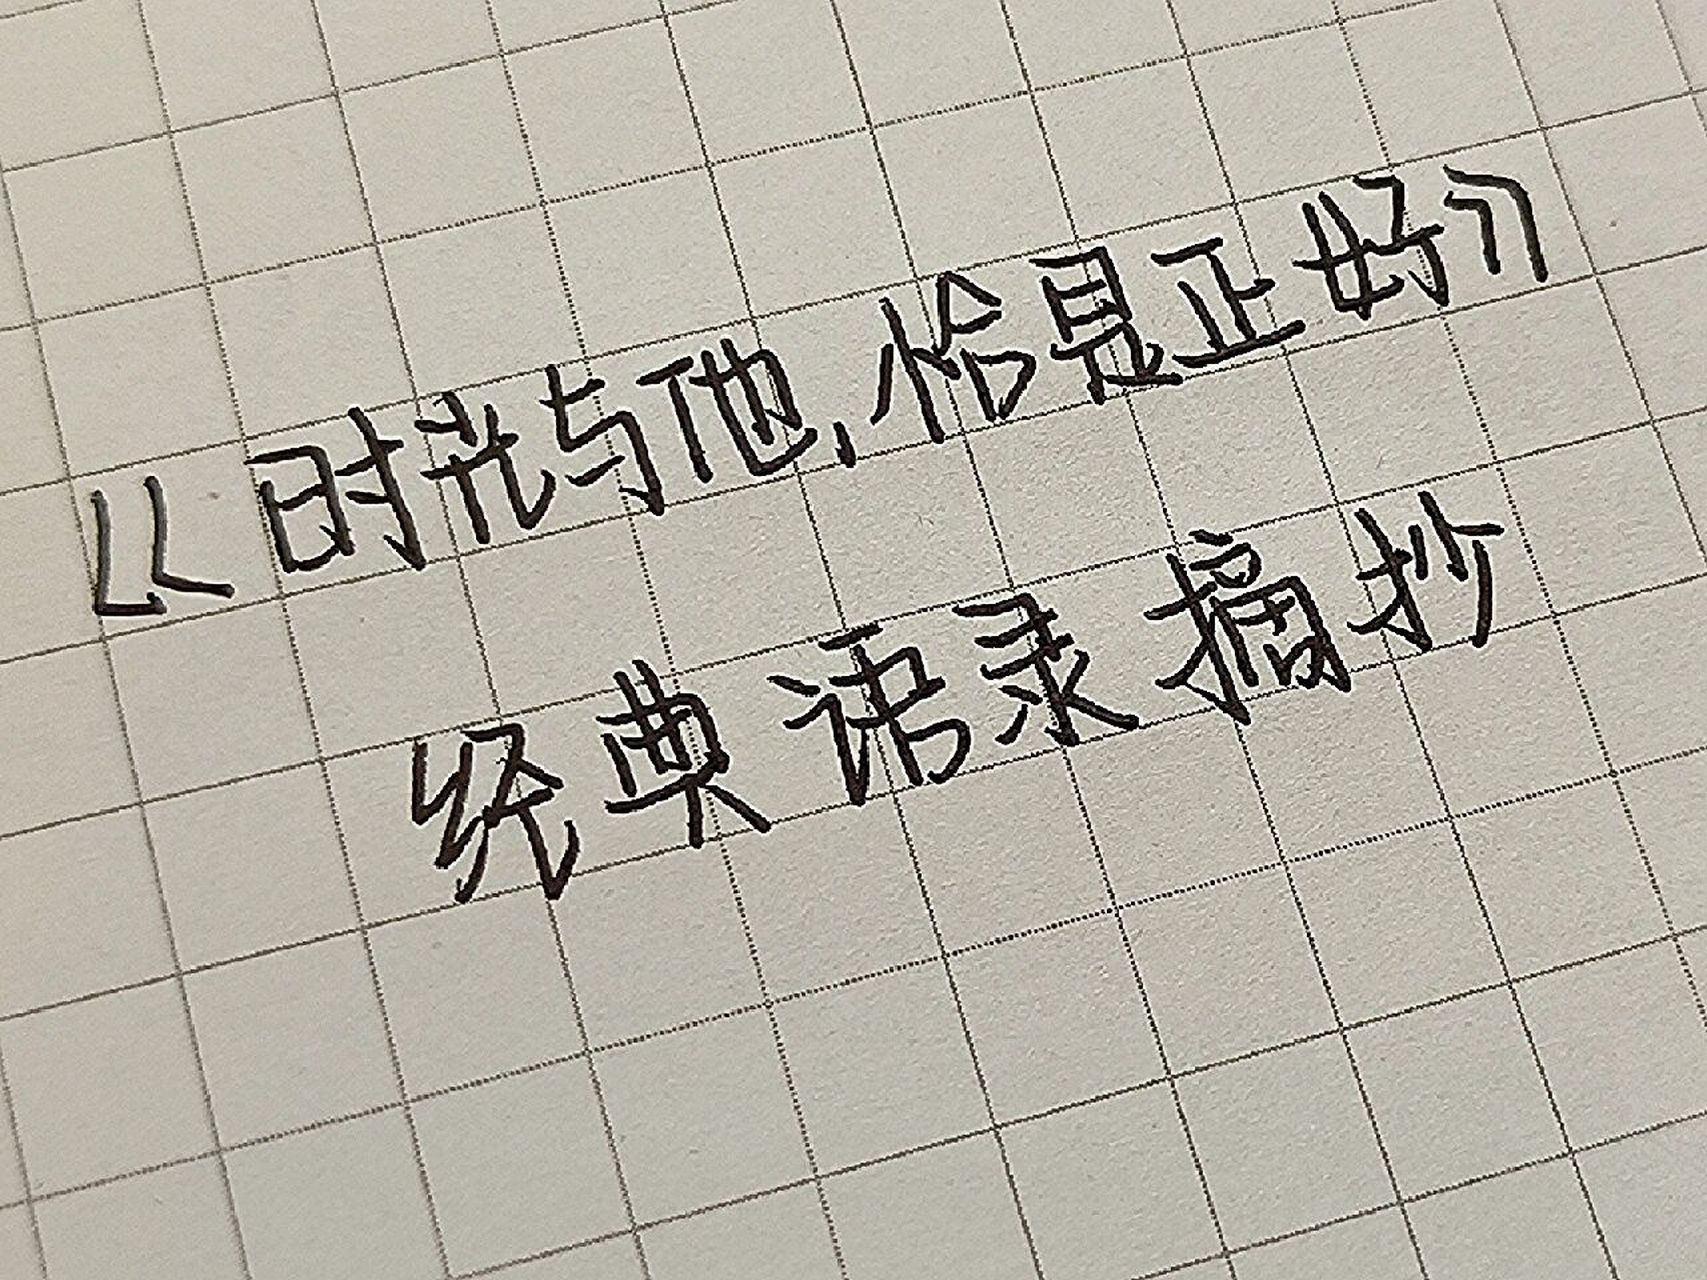 《时光与他,恰是正好》
经典语录摘抄